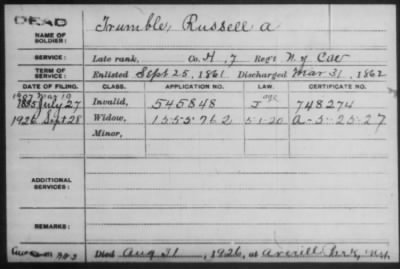 DEAD
NAME OF SOLDIER: Trumble, Russell A
SERVICE: Late rank, Co. H, 7 Reg't N.Y. Cav
TERM OF SERVICE: Enlisted Sept 28, 1861 Discharged Mar 31, 1862
DATE OF FILING. CLASS. APPLICATION NO. LAW. CERTIFICATE NO.
1907 May 10 age
1885 July 27 Invalid, 545848 J 748274
1926 Sept 28 Widow, 1555762 5-1-20 A-5-25-27
Minor,
ADDITIONAL SERVICES:
REMARKS:
Died Aug 31, 1926, at Averill Park, N.Y.